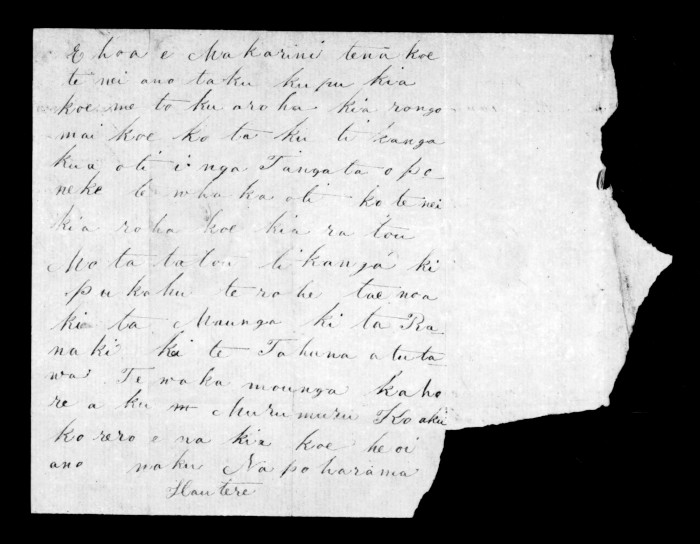 E hoa e Makarini tena koe
te nei ano taku kupu kia
koe me to ku aroha kia rongo
mai koe ko ta ku ti kanga
kua oti i nga Tangata o po
neke te whaka oti ko te nei
kia roha koe kia ra tou
Mo ta tatou tikanga ki
pukahu te rohe tae noa
ki ta Maunga ki ta Ra
naki kei te Tahuna a tuta
wa Te waka mounga kaho
re a ku Murumuru Ko aku
korero e na kia koe heoi
ano naku Na poharama
Hautere